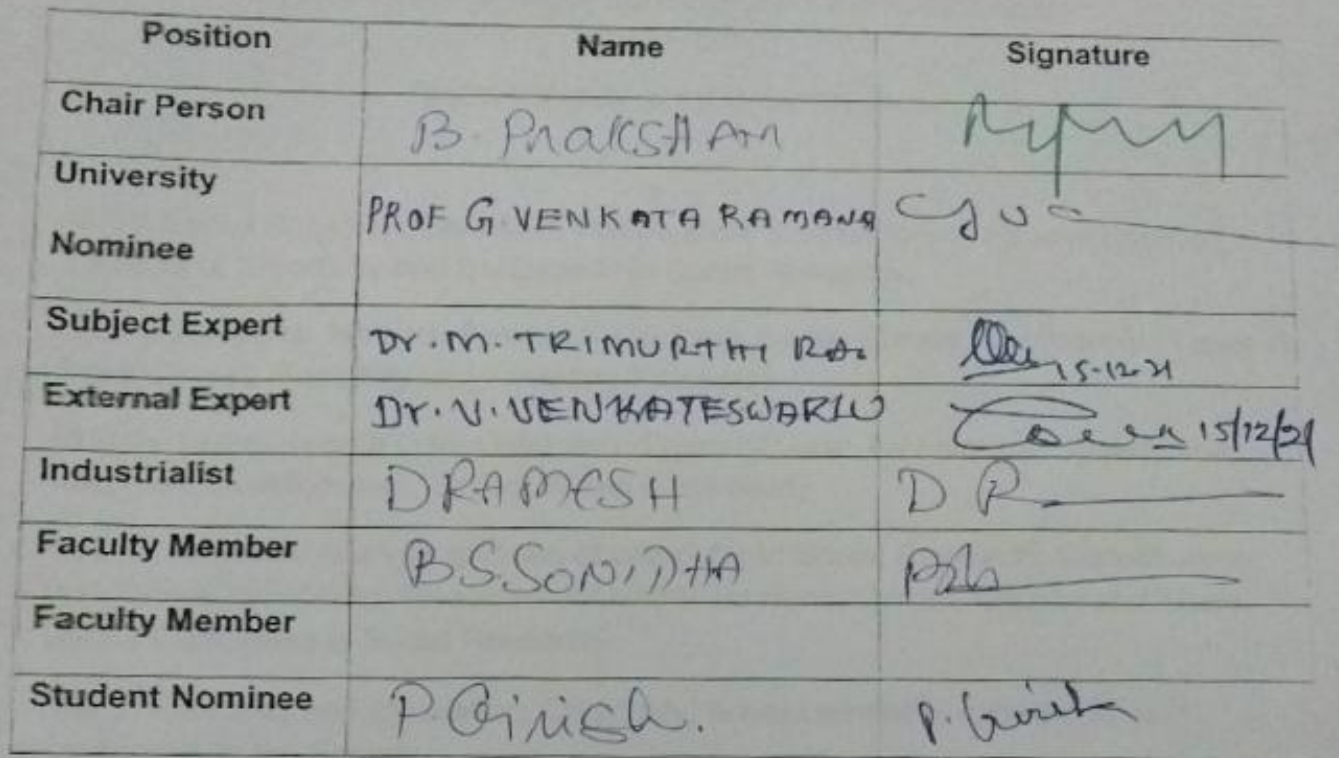 Position Name Signature
Chair Person B. PRAKSHAM
University
Nominee PROF G. VENKATA RAMANA
Subject Expert Dr. M. TRIMURTHI RAO 15-12-21
External Expert Dr. V. VENKATESWARLU 15/12/21
Industrialist D RAMESH D R
Faculty Member B.S.SONIDHA
Faculty Member
Student Nominee P. Girish. P. Girish